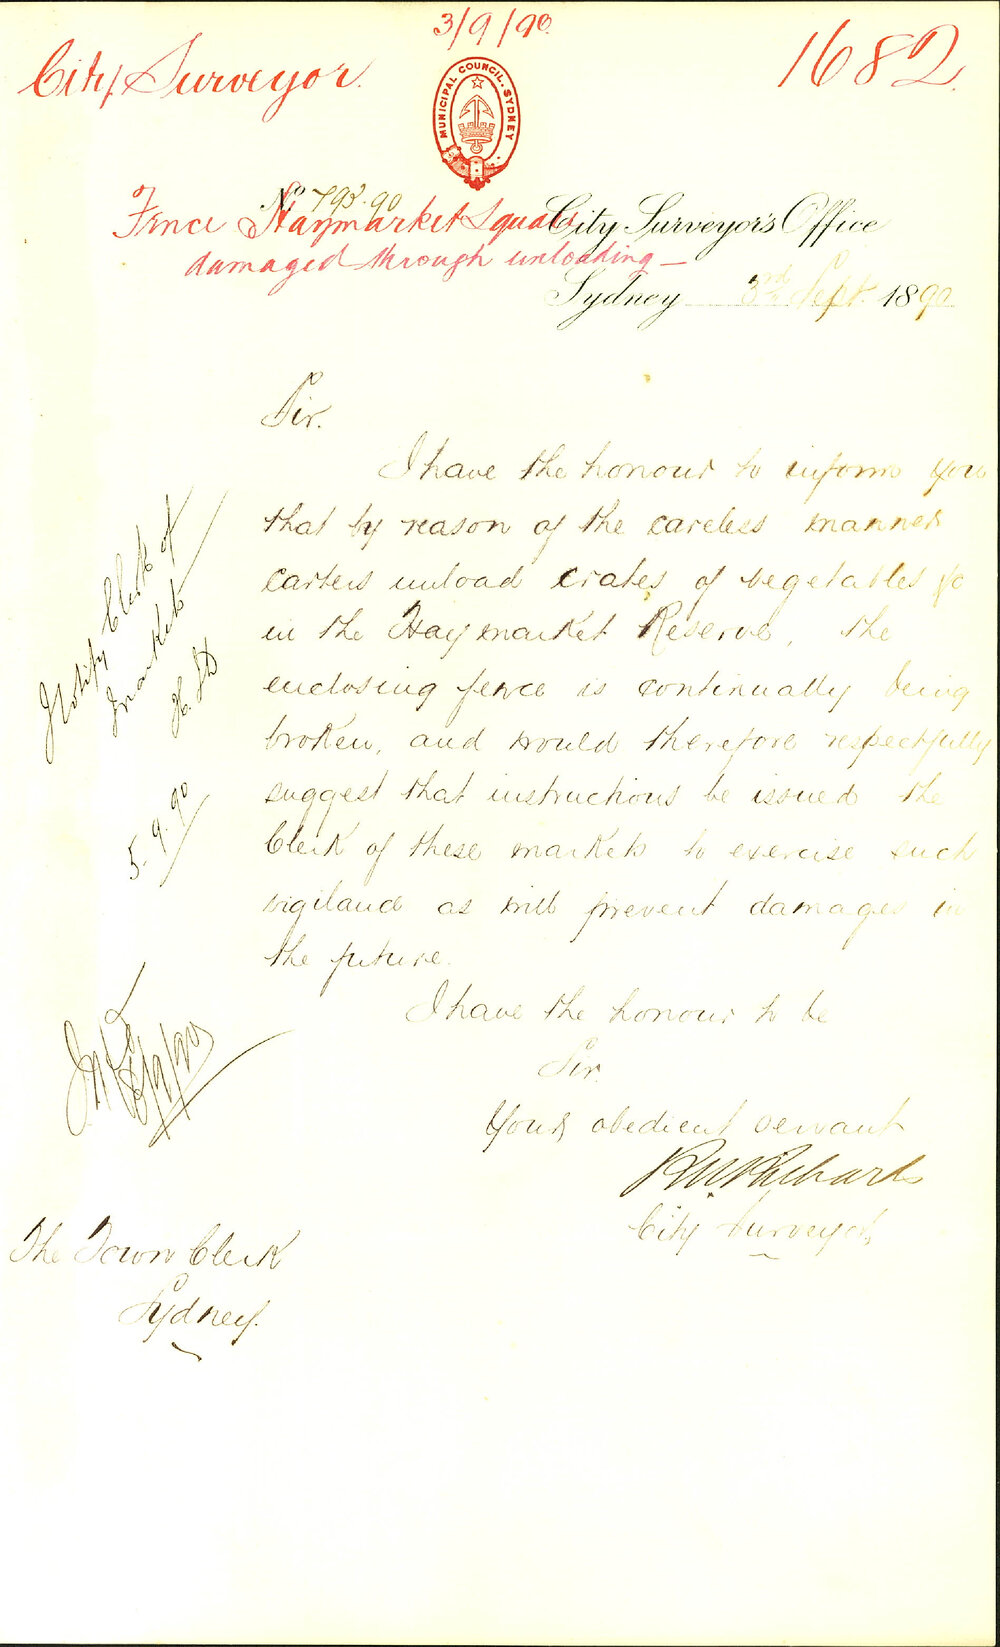 3/9/90
City Surveyor.
1682.
MUNICIPAL COUNCIL. SYDNEY
No 793.90
Fence Haymarket Square
damaged through unloading —
City Surveyor's Office
Sydney 3rd Sept. 1890
Sir.
I have the honour to inform you
that by reason of the careless manner
carters unload crates of vegetables &c
in the Haymarket Reserve, the
enclosing fence is continually being
broken, and would therefore respectfully
suggest that instructions be issued the
Clerk of these markets to exercise such
vigiland as will prevent damages in
the future.
I have the honour to be
Sir.
Your obedient servant
R W Richards
City Surveyor,
The Town Clerk
Sydney.
Notify Clerk of
Markets
5.9.90